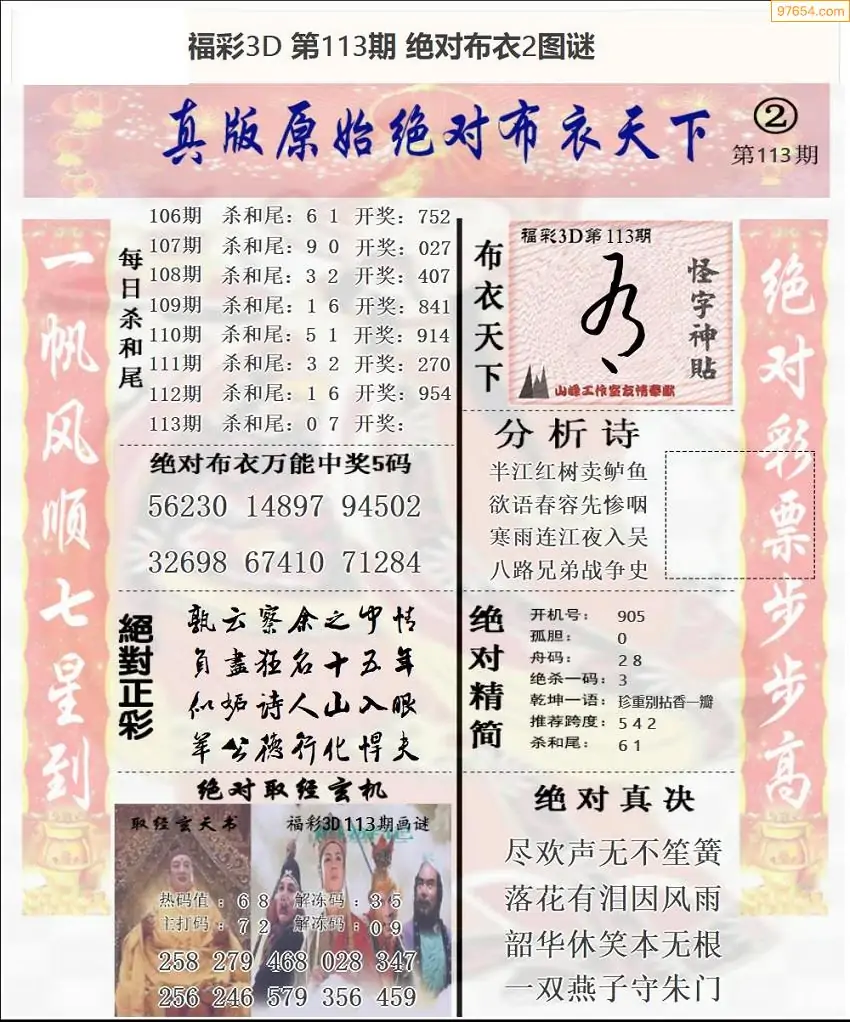 97654.com
福彩3D 第113期 绝对布衣2图谜
真版原始绝对布衣天下
②
第113期
一帆风顺七星到
每日杀和尾
106期 杀和尾：6 1 开奖：752
107期 杀和尾：9 0 开奖：027
108期 杀和尾：3 2 开奖：407
109期 杀和尾：1 6 开奖：841
110期 杀和尾：5 1 开奖：914
111期 杀和尾：3 2 开奖：270
112期 杀和尾：1 6 开奖：954
113期 杀和尾：0 7 开奖：
绝对布衣万能中奖5码
56230 14897 94502
32698 67410 71284
絕對正彩
孰云察余之中情
負盡狂名十五年
似妬诗人山入眼
羊公德行化悍夫
绝对取经玄机
取经玄天书
福彩3D113期画谜
热码值：6 8 解冻码：3 5
主打码：7 2 解冻码：0 9
258 279 468 028 347
256 246 579 356 459
布衣天下
福彩3D第113期
怪字神貼
山峰工作室友情奉献
分析诗
半江红树卖鲈鱼
欲语春容先惨咽
寒雨连江夜入吴
八路兄弟战争史
绝对精简
开机号： 905
孤胆： 0
舟码： 2 8
绝杀一码：3
乾坤一语：珍重别拈香一瓣
推荐跨度：5 4 2
杀和尾： 6 1
绝对真决
尽欢声无不笙簧
落花有泪因风雨
韶华休笑本无根
一双燕子守朱门
绝对彩票步步高